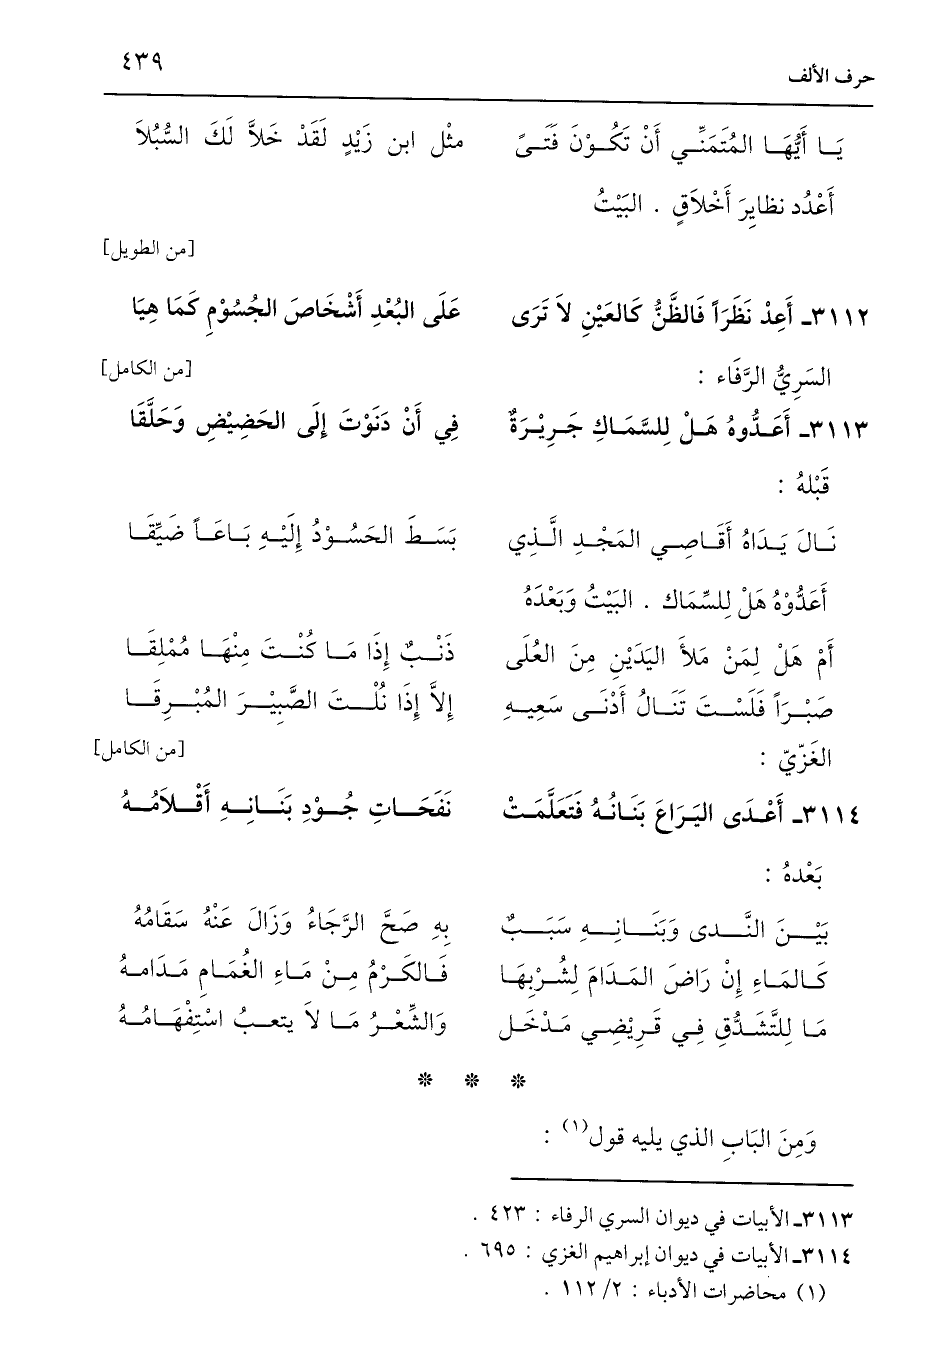 حرف الألف ٤٣٩
يَـا أَيُّهَـا المُتَمَنِّـي أَنْ تَكُـوْنَ فَتَـىً مثْل ابن زَيْدٍ لَقَدْ خَلاَّ لَكَ السُّبُلاَ
أَعْدُد نظايِرَ أَخْلاَقٍ . البَيْتُ
[من الطويل]
٣١١٢ـ أَعِدْ نَظَرَاً فَالظَّنُّ كَالعَيْنِ لاَ تَرَى عَلَى البُعْدِ أَشْخَاصَ الجُسُوْمِ كَمَا هِيَا
السَرِيُّ الرَّفَاء : [من الكامل]
٣١١٣ـ أَعَـدُّوهُ هَـلْ لِلسَّمَـاكِ جَـرِيْـرَةٌ فِي أَنْ دَنَوْتَ إِلَى الحَضِيْضِ وَحَلَّقَا
قَبْلهُ :
نَـالَ يَـدَاهُ أَقَـاصِـي المَجْـدِ الَّـذِي بَسَـطَ الحَسُـوْدُ إِلَيْـهِ بَـاعَـاً ضَيِّقَـا
أَعَدُّوْهُ هَلْ لِلسِّمَاك . البَيْتُ وَبَعْدَهُ
أَمْ هَلْ لِمَنْ مَلأَ اليَدَيْنِ مِنَ العُلَى ذَنْـبٌ إِذَا مَـا كُنْـتَ مِنْهَـا مُمْلِقَـا
صَبْـرَاً فَلَسْـتَ تَنَـالُ أَدْنَـى سَعِيـهِ إِلاَّ إِذَا نُلْـتَ الصَّبِيْـرَ المُبْـرِقَـا
الغَزّيّ : [من الكامل]
٣١١٤ـ أَعْـدَى اليَـرَاعَ بَنَـانُـهُ فَتَعَلَّمَـتْ نَفَحَـاتِ جُـوْدِ بَنَـانِـهِ أَقْـلاَمُـهُ
بَعْدهُ :
بَيْـنَ النَّـدى وَبَنَـانِـهِ سَبَـبٌ بِهِ صَحَّ الرَّجَاءُ وَزَالَ عَنْهُ سَقَامُهُ
كَـالمَـاءِ إِنْ رَاضَ المَدَامَ لِشُـرْبِهَـا فَـالكَرْمُ مِـنْ مَـاءِ الغُمَـامِ مَـدَامـهُ
مَـا لِلتَّشَـدُّقِ فِـي قَـرِيْضِـي مَـدْخَـل وَالشِّعْـرُ مَـا لاَ يتعـبُ اسْتِفْهَـامُـهُ
* * *
وَمِنَ البَابِ الذي يليه قول(١) :
٣١١٣ـ الأبيات في ديوان السري الرفاء : ٤٢٣ .
٣١١٤ـ الأبيات في ديوان إبراهيم الغزي : ٦٩٥ .
(١) محاضرات الأدباء : ٢/ ١١٢ .